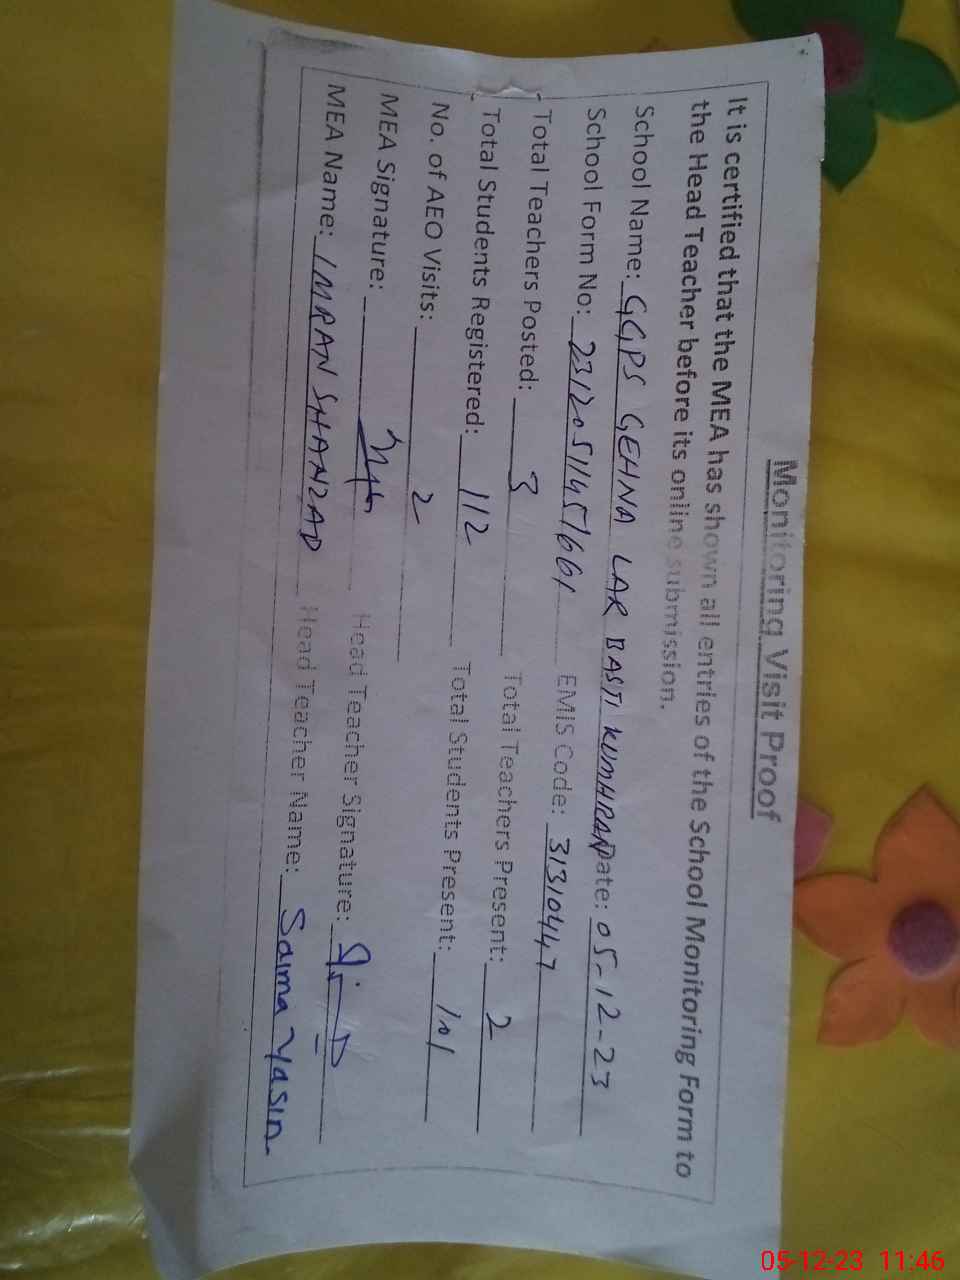 Monitoring Visit Proof
It is certified that the MEA has shown all entries of the School Monitoring Form to
the Head Teacher before its online submission.
School Name: GGPS GEHNA LAR BASTI KUMHRAN Date: 05-12-23
School Form No: EMIS Code: 31310447
Total Teachers Posted: 3 Total Teachers Present: 2
Total Students Registered: 112 Total Students Present: 101
No. of AEO Visits: 2
MEA Signature: Head Teacher Signature:
MEA Name: IMRAN SHAHZAD Head Teacher Name: Saima Yasin
05-12-23 11:46